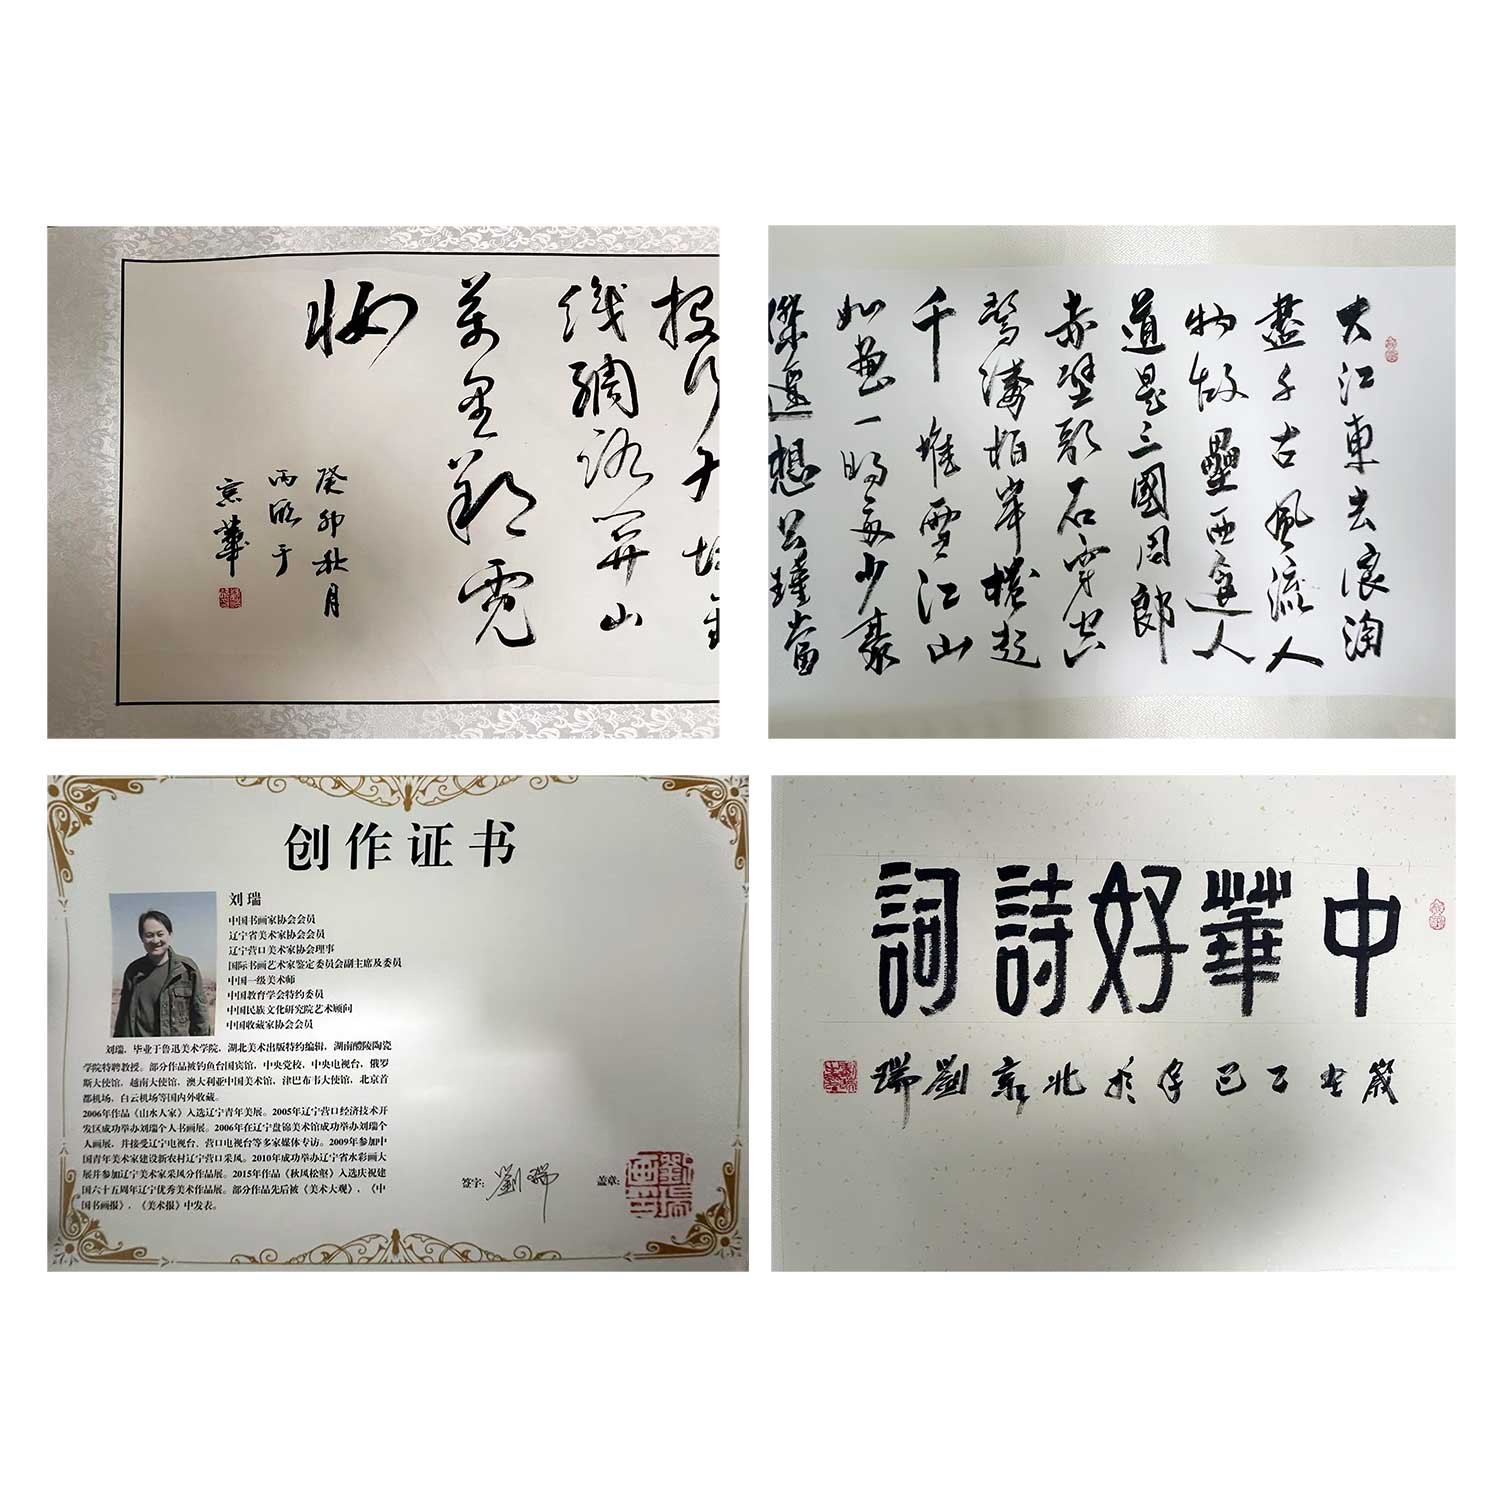 万里
开山
癸卯秋月
于
京華
大江東去浪淘
盡千古風流人
物故壘西邊人
道是三國周郎
赤壁亂石穿空
驚濤拍岸捲起
千堆雪江山
如畫一時多少豪
傑遙想公瑾當
创作证书
刘瑞
中国书画家协会会员
辽宁省美术家协会会员
辽宁营口美术家协会理事
国际书画艺术家鉴定委员会副主席及委员
中国一级美术师
中国教育学会特约委员
中国民族文化研究院艺术顾问
中国收藏家协会会员
刘瑞，毕业于鲁迅美术学院，湖北美术出版特约编辑，湖南醴陵陶瓷
学院特聘教授。部分作品被钓鱼台国宾馆，中央党校，中央电视台，俄罗
斯大使馆，越南大使馆，澳大利亚中国美术馆，津巴布韦大使馆，北京首
都机场，白云机场等国内外收藏。
2006年作品《山水人家》入选辽宁青年美展。2005年辽宁营口经济技术开
发区成功举办刘瑞个人书画展。2006年在辽宁盘锦美术馆成功举办刘瑞个
人画展，并接受辽宁电视台、营口电视台等多家媒体专访。2009年参加中
国青年美术家建设新农村辽宁营口采风。2010年成功举办辽宁省水彩画大
展并参加辽宁美术家采风分作品展。2015年作品《秋风松壑》入选庆祝建
国六十五周年辽宁优秀美术作品展。部分作品先后被《美术大观》，《中
国书画报》，《美术报》中发表。
签字：劉瑞
盖章：
中華好詩詞
丁巳年於北京劉瑞